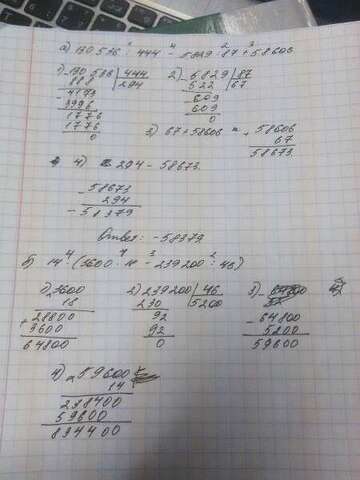 а) 130 536 : 444 - 5829 : 87 + 58606
1) 130 536 | 444
888 | 294
- 4173
3996
- 1776
1776
0
2) - 5829 | 87
522 | 67
- 609
609
0
3) 67 + 58606 = + 58606
67
58673
4) 294 - 58673
- 58673
294
- 58379
Ответ: - 58379
б) 14 (3600 · 18 - 239200 : 46)
1) 3600
18
28800
+ 3600
64800
2) 239200 | 46
230 | 5200
92
92
0
3)
- 64800
5200
59600
4) × 59600
14
238400
59600
834400